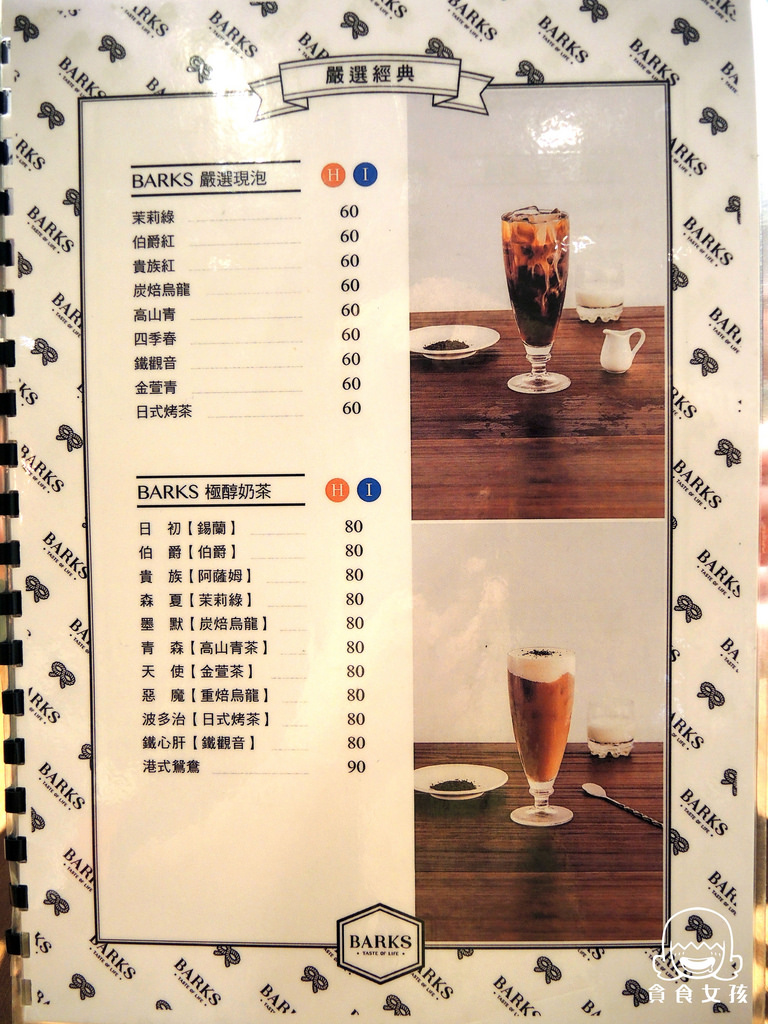 嚴選經典
BARKS 嚴選現泡 H I
茉莉綠 60
伯爵紅 60
貴族紅 60
炭焙烏龍 60
高山青 60
四季春 60
鐵觀音 60
金萱青 60
日式烤茶 60
BARKS 極醇奶茶 H I
日 初【錫蘭】 80
伯 爵【伯爵】 80
貴 族【阿薩姆】 80
森 夏【茉莉綠】 80
墨 默【炭焙烏龍】 80
青 森【高山青茶】 80
天 使【金萱茶】 80
惡 魔【重焙烏龍】 80
波多治【日式烤茶】 80
鐵心肝【鐵觀音】 80
港式鴛鴦 90
BARKS
TASTE OF LIFE
貪食女孩